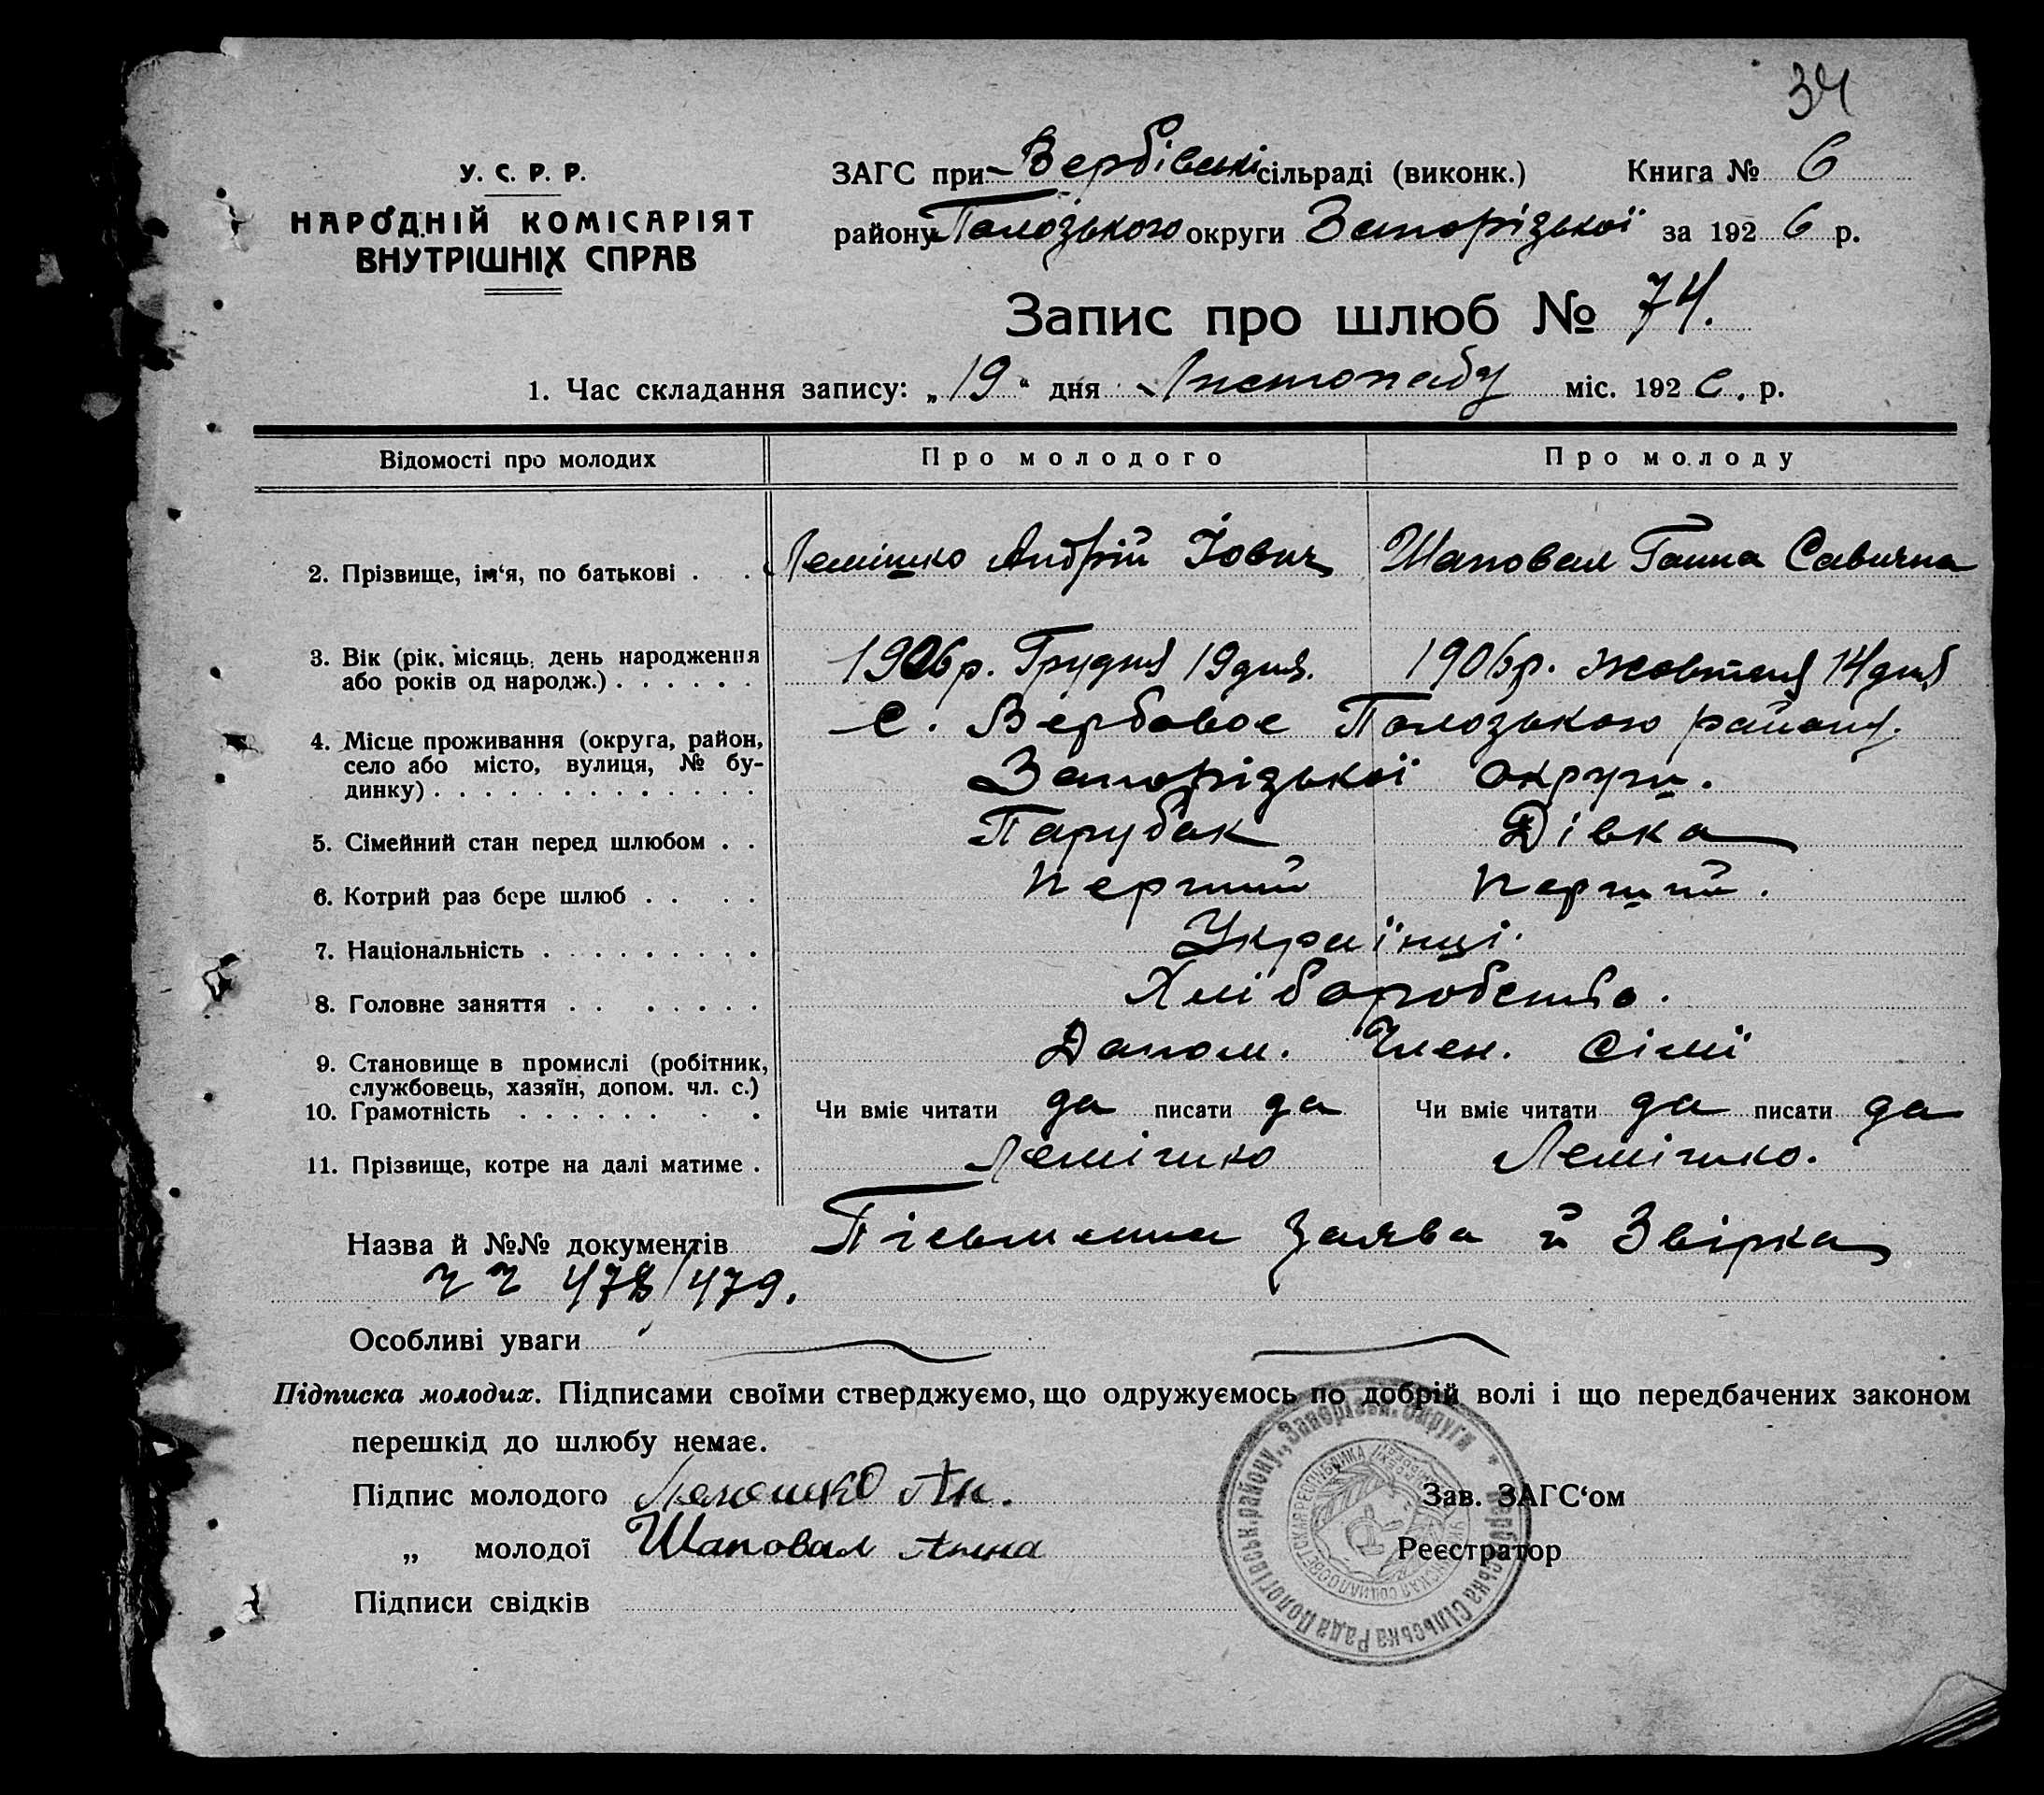 34
У. С. Р. Р.
НАРОДНІЙ КОМІСАРІЯТ
ВНУТРІШНІХ СПРАВ
ЗАГС при Вербівські сільраді (виконк.) Книга № 6
району Полозького округи Запорізької за 1926 р.
Запис про шлюб № 74.
1. Час складання запису: „19“ дня Листопаду міс. 1926. р.
Відомості про молодих Про молодого Про молоду
2. Прізвище, ім‘я, по батькові . . Лемішко Андрій Йович Шаповал Ганна Савична
3. Вік (рік, місяць, день народження
або років од народж.) . . . . . . 1906 р. Грудня 19 дня. 1906 р. жовтня 14 дня
4. Місце проживання (округа, район,
село або місто, вулиця, № бу-
динку) . . . . . . . . . . . . .
с. Вербовое Полозького району.
Запорізької округи.
5. Сімейний стан перед шлюбом . . Парубак Дівка
6. Котрий раз бере шлюб . . . . Перший Перший.
7. Національність . . . . . . . . . Українці.
8. Головне заняття . . . . . . . . Хліборобство.
9. Становище в промислі (робітник,
службовець, хазяїн, допом. чл. с.) Допом. Член. Сімі
10. Грамотність . . . . . . . . Чи вміє читати да писати да Чи вміє читати да писати да
11. Прізвище, котре на далі матиме . Лемішко Лемішко.
Назва й №№ документів Пісьменна Заява й Звірка
ч ч 478/479.
Особливі уваги
Підписка молодих. Підписами своїми стверджуємо, що одружуємось по добрій волі і що передбачених законом
перешкід до шлюбу немає.
Підпис молодого Лемешко Ан. Зав. ЗАГС‘ом
„ молодої Шаповал Анна Реєстратор
Підписи свідків
Вербівська Сільська Рада Пологівськ. району, Запорізьк. Округи